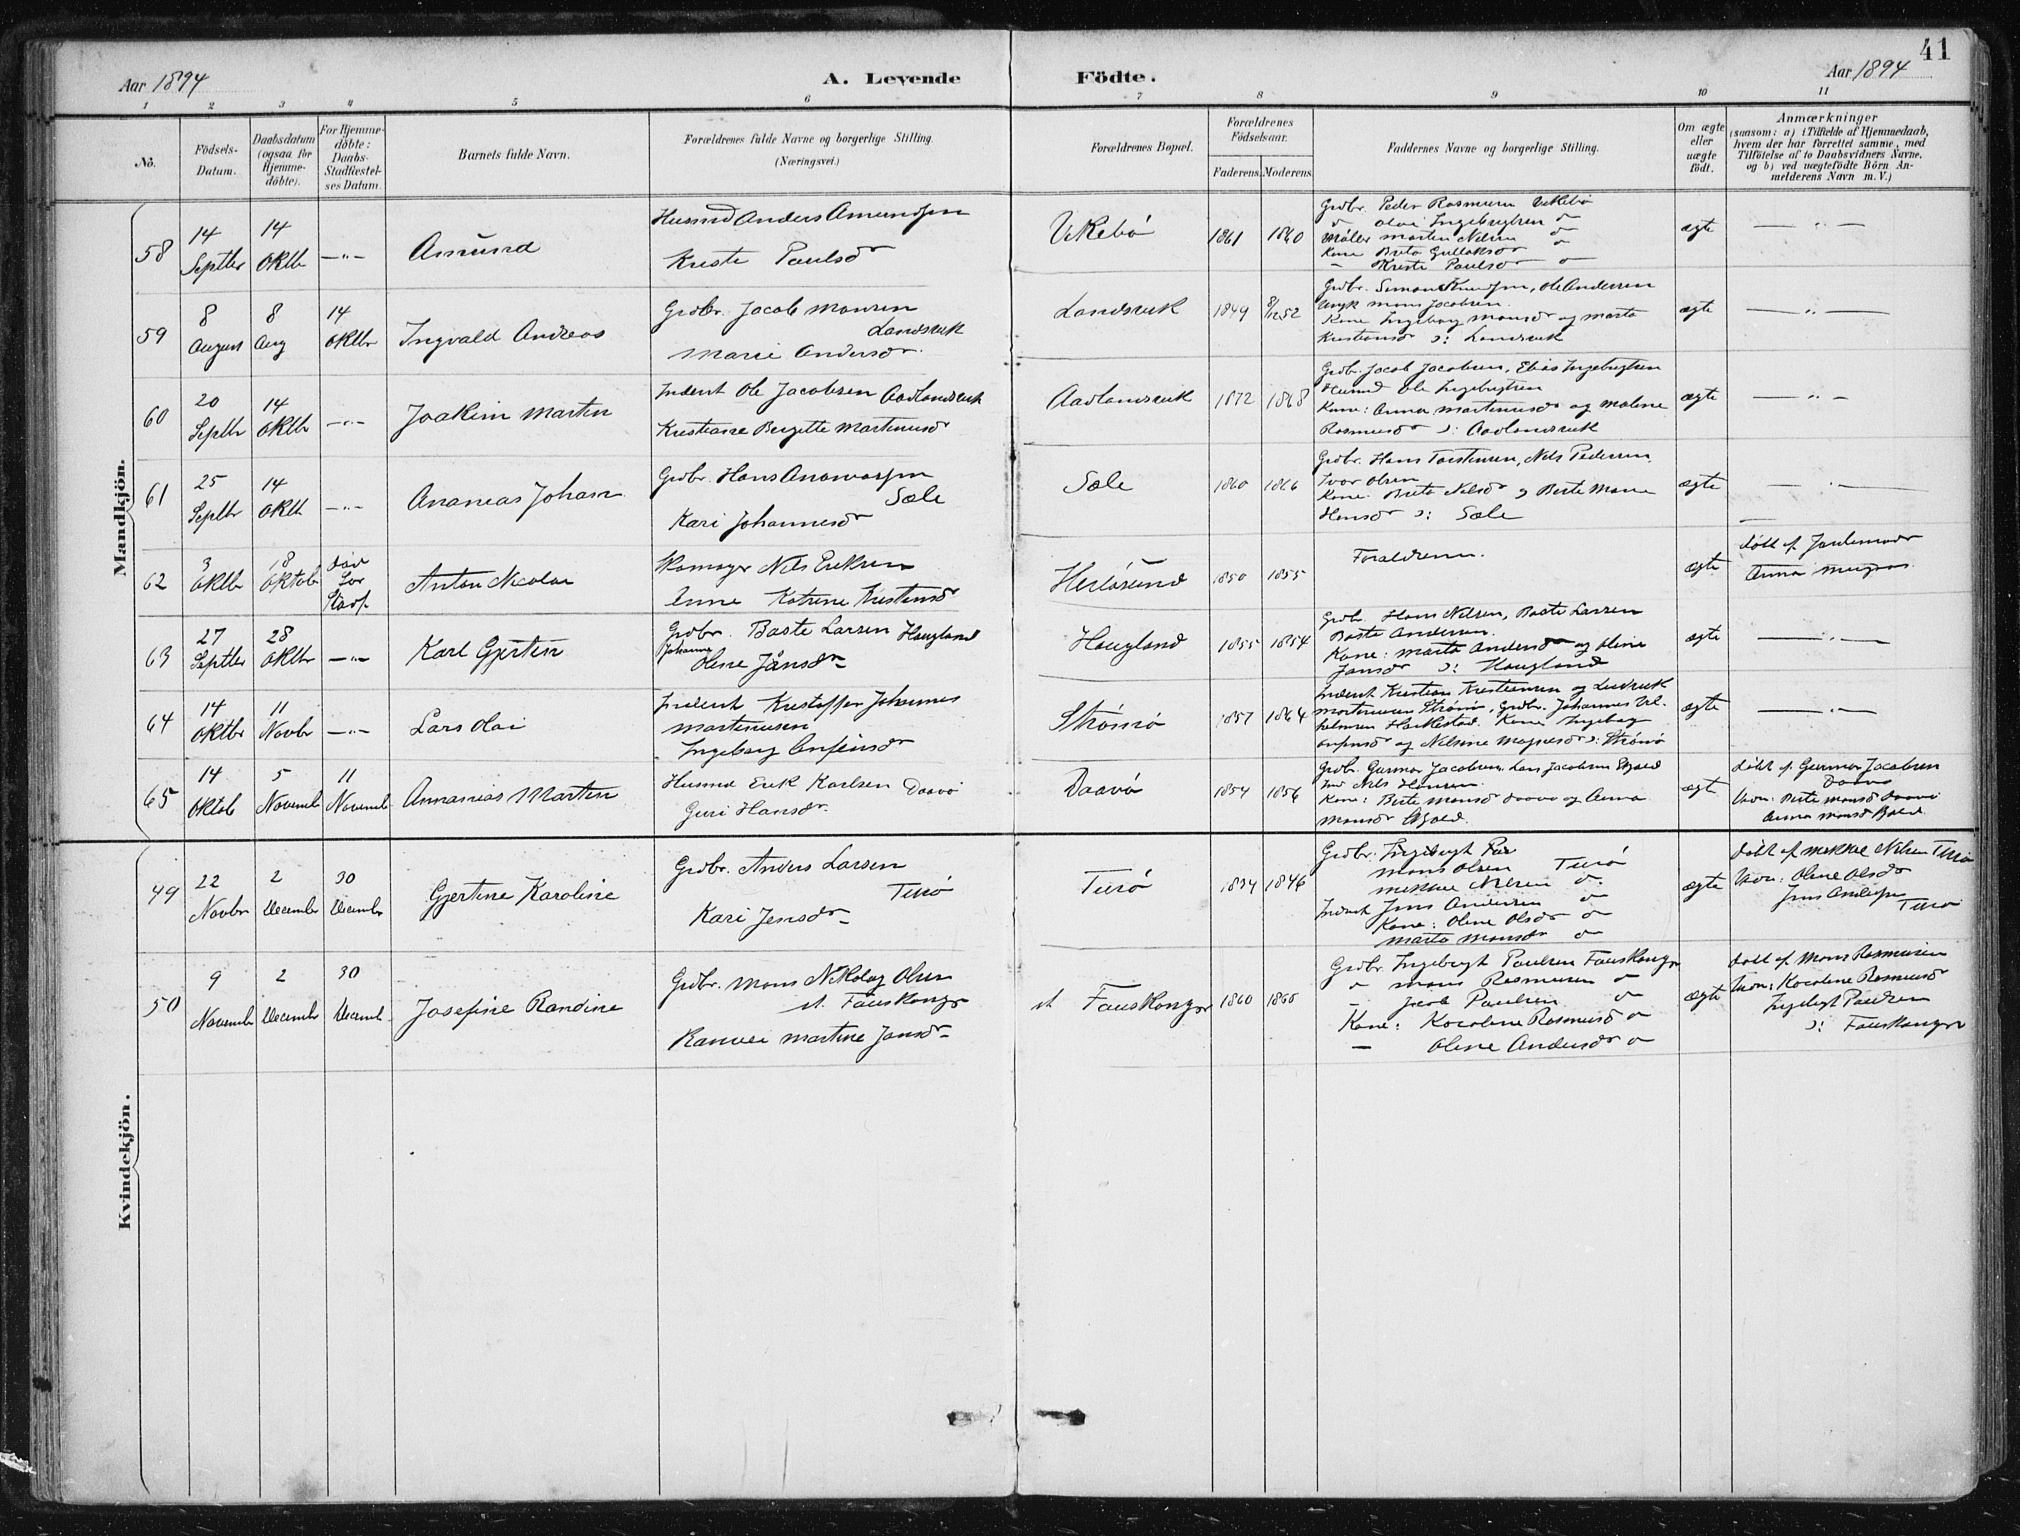 41
Aar 1894
A. Levende Födte.
Aar 1894
1 2 3 4 5 6 7 8 9 10 11
No.
Födsels-Datum.
Daabsdatum (ogsaa for Hjemme-döbte).
For Hjemme-döbte: Daabs-Stadfæstel-ses Datum.
Barnets fulde Navn.
Forældrenes fulde Navne og borgerlige Stilling.
(Næringsvei.)
Forældrenes Bopæl.
Forældrenes Födselsaar.
Faderens. Moderens.
Faddernes Navne og borgerlige Stilling.
Om ægte eller uægte födt.
Anmærkninger
(saasom: a) i Tilfælde af Hjemmedaab, hvem der har forrettet samme, med Tilföielse af to Daabsvidners Navne, og b) ved uægtefödte Börn An-melderens Navn m. V.)
Mandkjön.
58
14 Septbr
14 Oktb
—"—
Amund
Husmd Anders Amundsen
Kriste Paulsdr
Vikebø
1861 1860
Grdbr. Peder Rasmusen Vikebø
do Olai Ingebrigtsen do
Maler Marten Nilsen do
Kone Brita Gullaksdr do
— Kriste Paulsdr do
ægte
— " —
59
8 August
8 Aug
14 Oktbr
Ingvald Andreas
Grdbr. Jacob Monsen
Landsvik
Marie Andersdr.
Landsvik
1849 8/12 52
Grdbr. Simon Knudsen, Ole Andersen
Ungk Mons Jacobsen.
Kone Ingeborg Monsdr og Marta
Kristiansdr ɔ: Landsvik
ægte
— " —
60
20 Septbr
14 Oktbr
—"—
Joakim Martin
Inderst Ole Jacobsen Aadlandsvik
Kristiane Bergitte Martinusdr
Aadlandsvik
1872 1868
Grdbr. Jacob Jacobsen, Elias Ingebrigtsen
Husmd Ole Ingebrigtsen
Kone: Anna Martinusdr og Malene
Rasmusdr ɔ: Aadlandsvik
ægte
— " —
61
25 Septbr
14 Oktb
—"—
Ananias Johan
Grdbr. Hans
Sæle
Kari Johannesdr
Sæle
1860 1866
Grdbr. Hans Torstensen, Nils Pedersen.
Ivar Olsen
Kone: Brita Nilsdr og Berte Marie
Hansdr ɔ: Sæle
ægte
— " —
62
3 Oktbr
18 Oktob
død før Stadf
Anton Nicolai
Skomager Nils Eriksen
Anne Katrine Kristensdr
Herløsund
1850 1855
Forældrene.
ægte
døbt af Jordemoder
Anna
63
27 Septbr
28 Oktbr
—"—
Karl Gjertin
Grdbr. Baste Larsen Haugland
Johanne
Oline Jånsdr
Haugland
1855 1854
Grdb. Hans Nilsen, Baste Larsen
Baste Andersen.
Kone: Marta Andersdr og Oline
Jansdr ɔ: Haugland
ægte
— " —
64
14 Oktbr
11 Novbr
—"—
Lars Olai
Inderst Kristoffer Johannes
Martinusen
Ingeborg Anfinsdr
Strømø
1857 1864
Inderst Kristian Kristiansen og Ludvik
Martinusen Strømø, Grdbr. Johannes Vil-
helmsen Harkestad. Kone Ingeborg
Anfinsdr og Nilsine Magnesdr ɔ: Strømø
ægte
— " —
65
14 Oktob
5 Novembr
11 Novembr
Annanias Martin
Husmd Erik Karlsen Daavø
Guri Hansdr
Daavø
1854 1856
Grdbr. Gunnar Jacobsen, Lars Jacobsen
Nils Hansen
Kone: Berte Monsdr Daavø og Anna
Monsdr
ægt
døbt af Gunnar Jacobsen
Daavø
Vidn: Berte Monsdr Daavø
Anna Monsdr
Kvindekjön.
49
22 Novbr
2 December
30 December
Gjertine Karoline
Grdbr. Anders Larsen
Turø
Kari Jensdr
Turø
1834 1846
Grdbr. Ingebrigt
Mons Olsen Turø
Mikkel Nilsen do
Inderst Jens Andersen do
Kone: Oline Olsdr do
Marta Monsdr do
ægte
døbt af Mikkel Nilsen Turø
Vidn: Oline Olsdr
Jens Andersen
Turø
50
9 Novembr
2 December
30 Decemb
Josefine Randine
Grdbr. Mons Nikolay Olsen
st. Fauskanger
Ranvei Martine Jansdr
st Fauskanger
1860 1866
Grdbr. Ingebrigt Paulsen Fauskanger
do Mons Rasmusen do
— Jacob Paulsen do
Kone: Karoline Rasmusdr do
— Oline Andersdr do
ægte
døbt af Mons Rasmusen
Vidn: Karoline Rasmusdr
Ingebrigt Paulsen
ɔ: Fauskanger